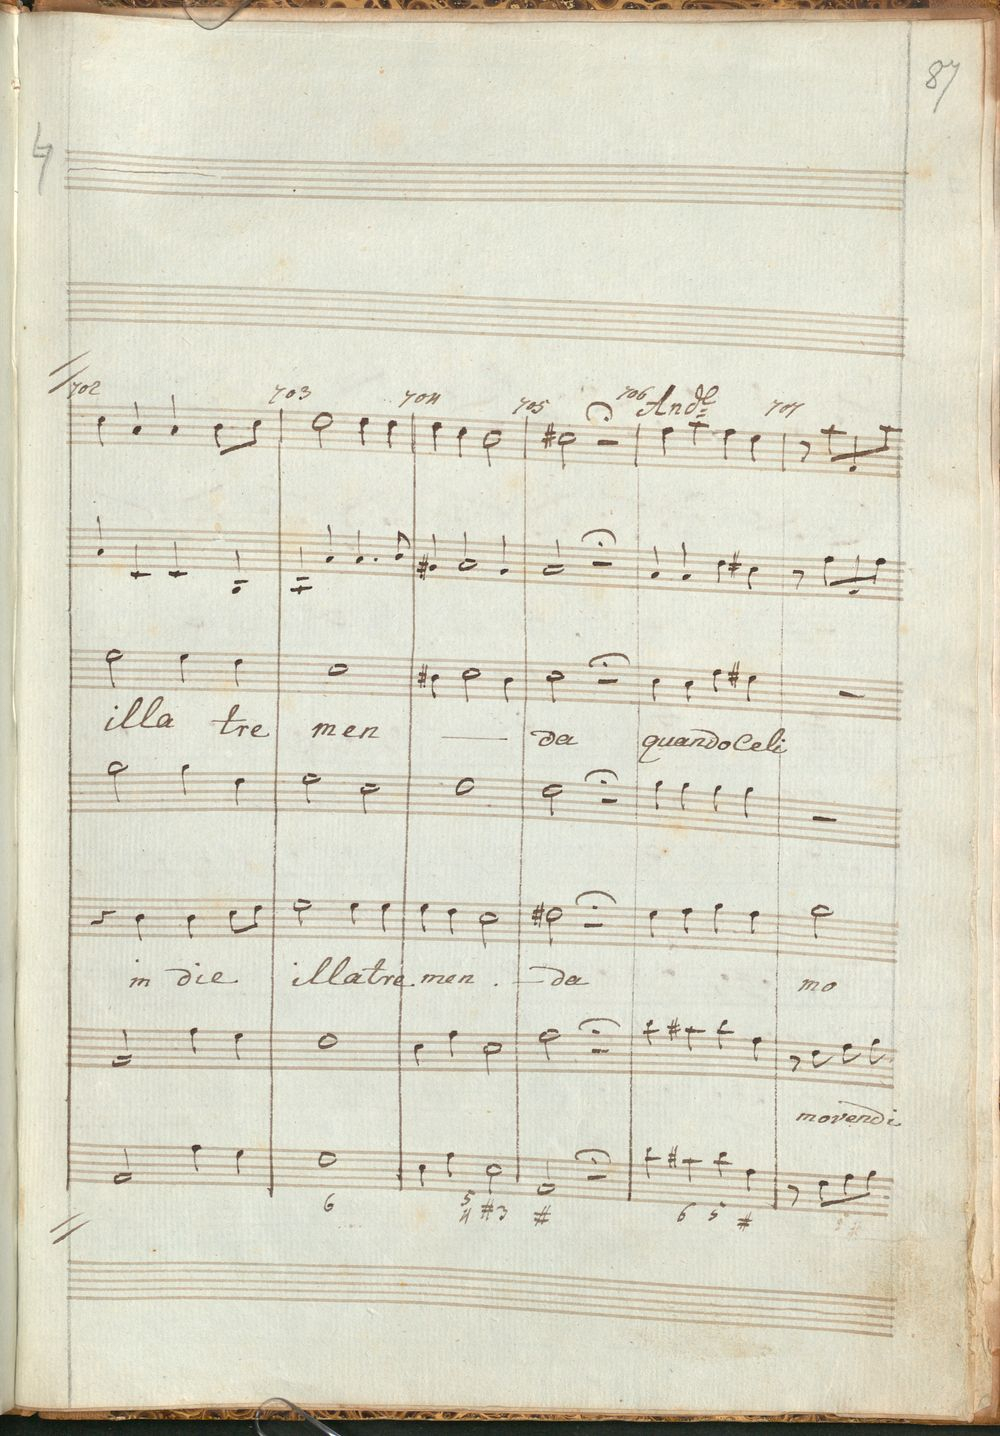 87
4
702 703 704 705 706 And.e 707
illa tre men da quando Celi
in die illa tre men . da mo
movendi
6 5 4 #3 # 6 5 #